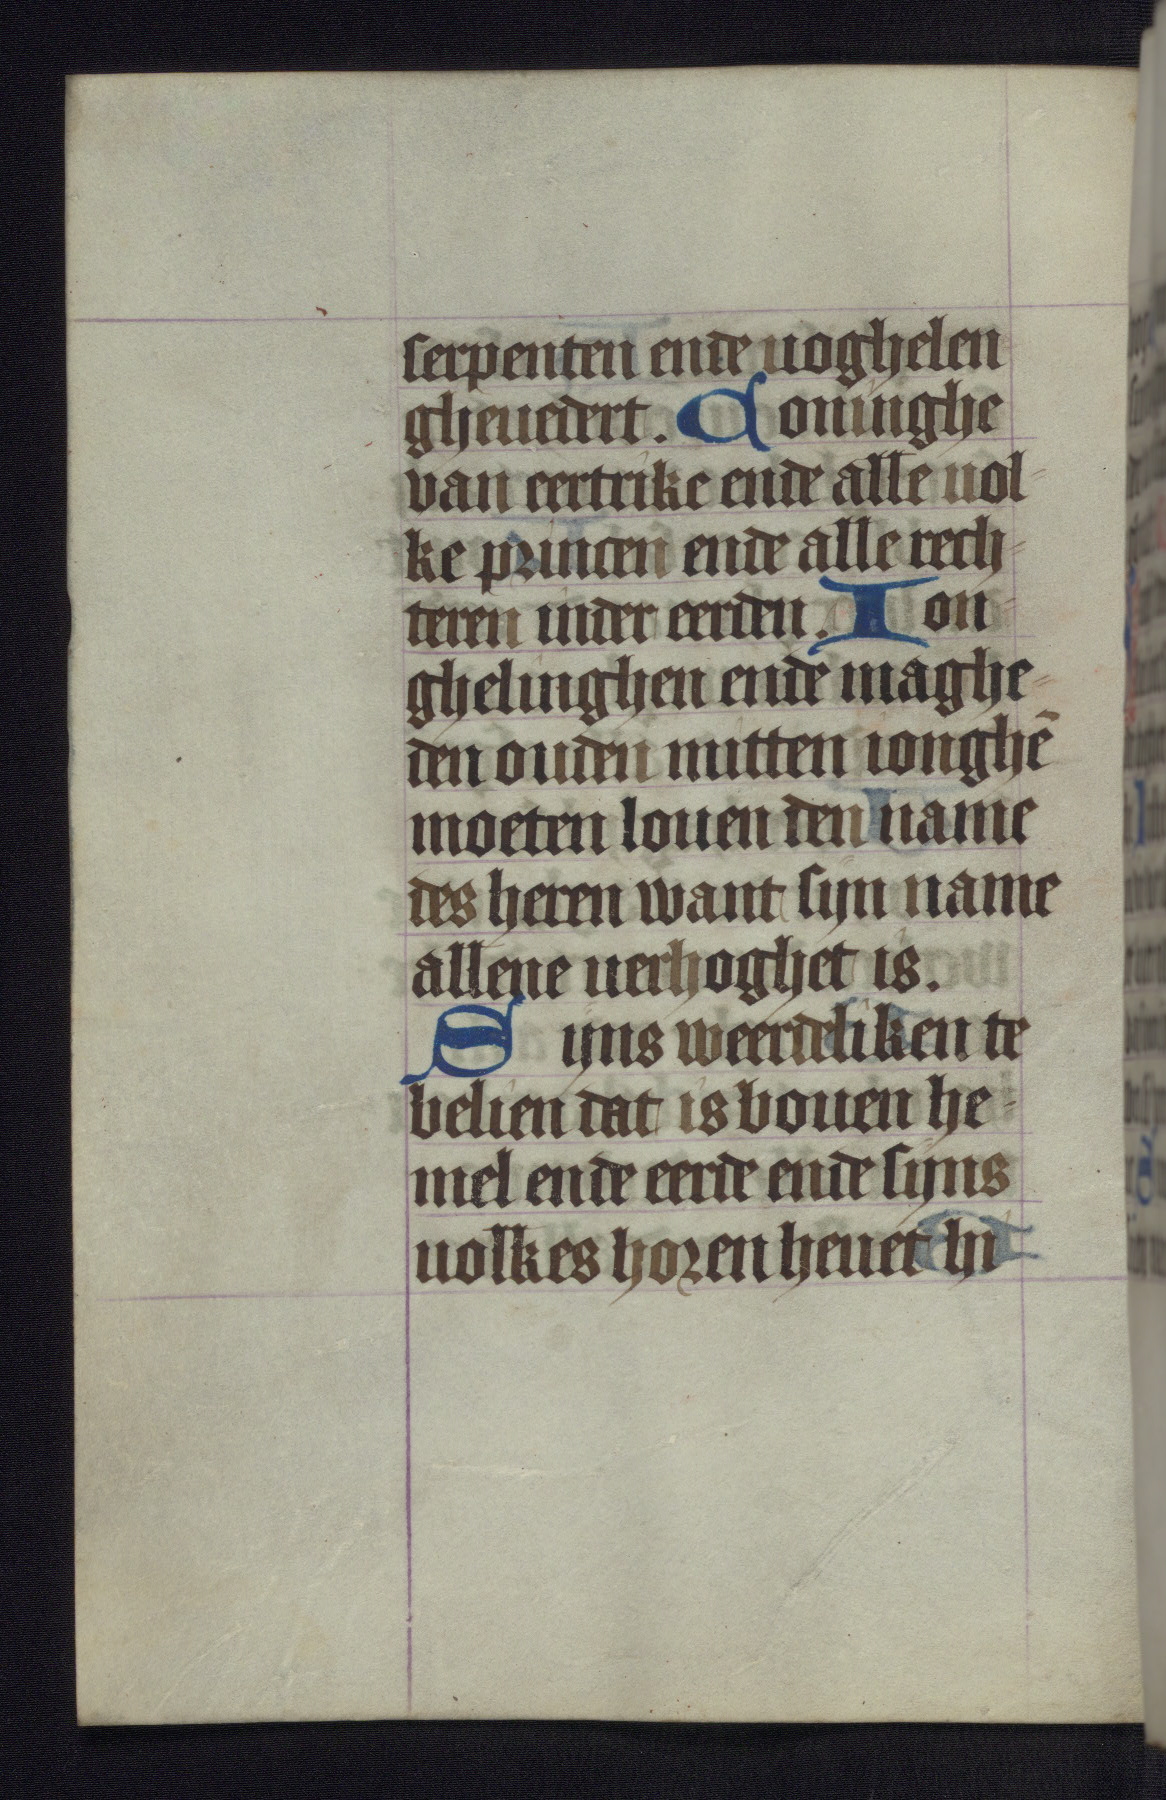 serpenten ende uoghelen
gheuedert. Coninghe
van eertrike ende alle uol-
ke princen ende alle rech-
teren inder eerden. Ion-
ghelinghen ende maghe-
den ouden mitten ionghē
moeten louen den name
des heren want sijn name
allene uerhoghet is.
Sijns weerdeliken te
belien dat is bouen he-
mel ende eerde ende sijns
uolkes horen heuet hi